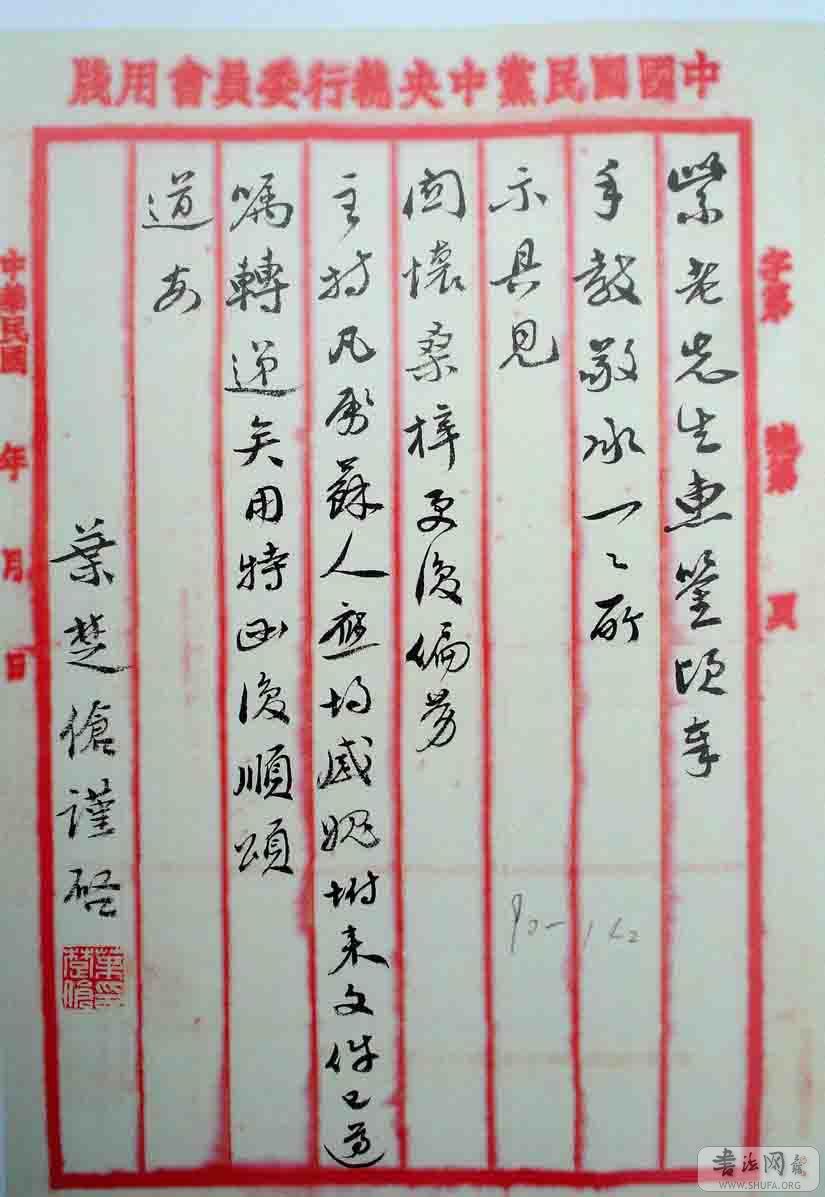 中國國民黨中央執行委員會用牋
字第 號第 頁
紫老先生惠鑒頃奉
手教敬承一〻所
示具見
關懷桑梓更復偏勞
主持凡屬蘇人應均感媿附來文件已遵
囑轉遞矣用特函復順頌
道安
葉楚傖謹啓
中華民國 年 月 日
90-162
書法网
WWW.SHUFA.ORG